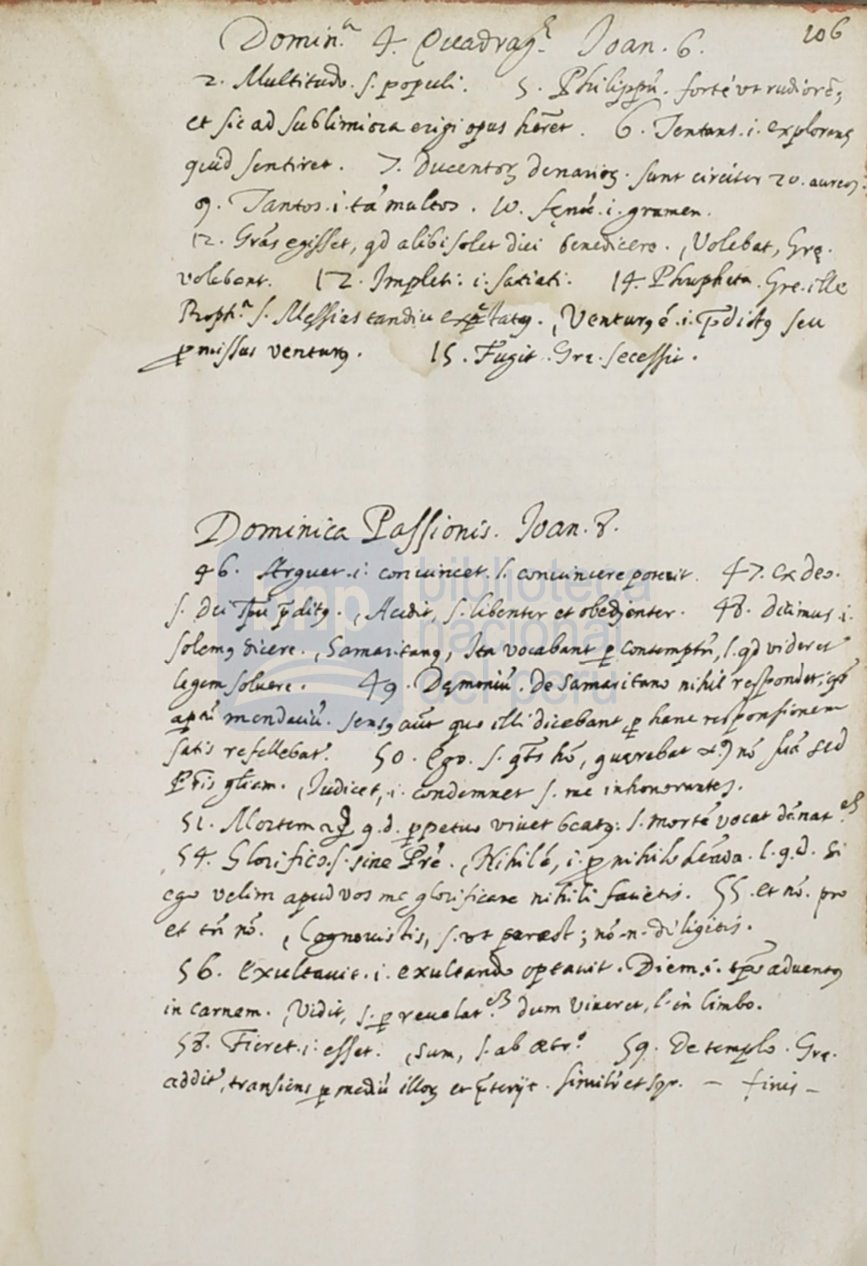 106
Domin.ª 4. Quadrag.ᵉ Ioan. 6.
2. Multitudo. s. populi. 5. Philippũ. forté vt rudiorẽ,
et sic ad sublimiora erigi opus hẽret. 6. Tentans .i. explorans
quid sentiret. 7. Ducentoꝝ denarioꝝ. sunt circiter 20. aureoꝝ.
9. Tantos .i. tã multos. 10. fęnũ .i. gramen.
12. Grãs egisset, qd alibi solet dici benedicere. , Volebat, Grę.
volebant. 12. Impleti: i. satiati. 14. Propheta. Gre. ille
Proph.ª s. Messias tandiu expẽtatꝯ. , Venturꝯ é .i. p̃dictꝯ seu
ꝓmissus venturꝯ. 15. Fugit. Gre. secessit.
Dominica Passionis. Ioan. 8.
46. Arguet .i. conuincet. l. conuincere poterit. 47. Ex deo.
s. dei spũ p̃ditꝯ. , Audit, s. libenter et obedienter. 48. Dicimus .i.
solemꝯ dicere. , Samaritanꝯ, Ita vocabant ꝑ contemptũ, l. qd videret
legem soluere. 49. Dęmoniũ. De Samaritano nihil respondet,
mendaciũ. sensꝯ aũt quo illi dicebant, ꝑ hanc responsionem
satis refellebat. 50. Ego. s. hõ, quęrebat nõ suã sed
Pr̃is gl̃iam. , Iudicet, .i. condemnet s. me inhonorantes.
51. Mortem q. d. ꝑpetuo viuet beatꝯ: l. mortẽ vocat dãnat.ᵉᵐ
54. Glorifico. s. sine Pr̃e. , Nihil é, i. ꝓ nihilo hẽnda. l. q. d. Si
ego velim apud vos me glorificare nihili facietis. 55. et nõ. pro
et tñ nõ. , Cognouistis, s. vt par est; nõ .n. diligitis.
56. Exultauit .i. exultando optauit. Diem .i. tp̃s aduentꝯ
in carnem. , Vidit, s. ꝑ reuelat.ᵉᵐ dum viueret, l. in limbo.
58. Fieret .i. esset. , Sum, s. ab ætr.º 59. De templo. Grę.
addit, transiens ꝑ mediũ illoꝝ et p̃terijt. similr̃ et syr. - finis -
bnp biblioteca
nacional
del perú